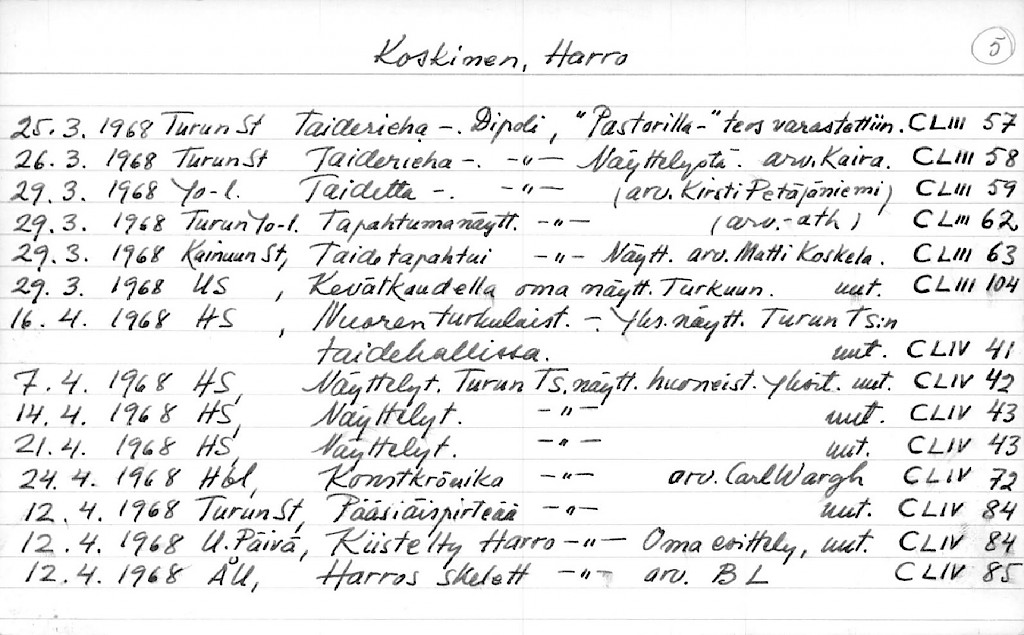 5
Koskinen, Harro
25.3. 1968 Turun St Taidericha -. Dipoli, "Pastorilla-" teos varastettiin. CLIII 57
26.3. 1968 Turun St Taidericha -. -"- Näyttelystä. arv. Kaira. CLIII 58
29.3. 1968 Yo-l. Taidetta -. -"- (arv. Kirsti Petäjäniemi) CLIII 59
29.3. 1968 Turun Yo-l. Tapahtumanäytt. -"- (arv.-ath) CLIII 62
29.3. 1968 Kainuun St, Taidetapahtui -"- Näytt. arv. Matti Koskela. CLIII 63
29.3. 1968 US, Kevätkaudella oma näytt. Turkuun. uut. CLIII 104
16.4. 1968 HS, Nuoren turkulaist. -. Yks. näytt. Turun TS:n
taidehallissa. uut. CLIV 41
7.4. 1968 HS, Näyttelyt. Turun TS. näytt. huoneist. Yksit. uut. CLIV 42
14.4. 1968 HS, Näyttelyt. -"- uut. CLIV 43
21.4. 1968 HS, Näyttelyt. -"- uut. CLIV 43
24.4. 1968 Hbl, Konstkrönika -"- arv. Carl Wargh CLIV 72
12.4. 1968 Turun St, Pääsiäispirteää -"- uut. CLIV 84
12.4. 1968 U. Päivä, Kiistelty Harro -"- Oma esittely, uut. CLIV 84
12.4. 1968 ÅU, Harros skelett -"- arv. B L CLIV 85